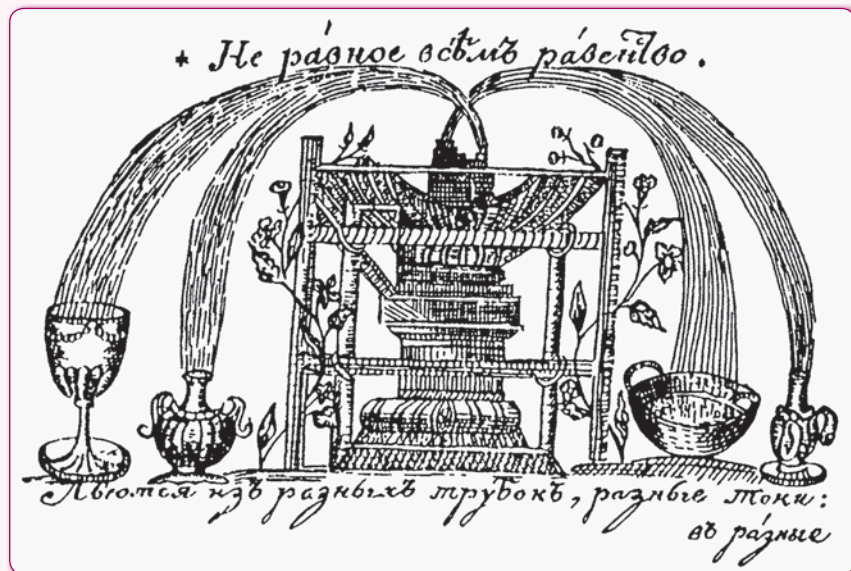 * Не ра́вное всѣмъ ра́венство.
Льются изъ разныхъ трубокъ, разные токи:
въ ра́зные